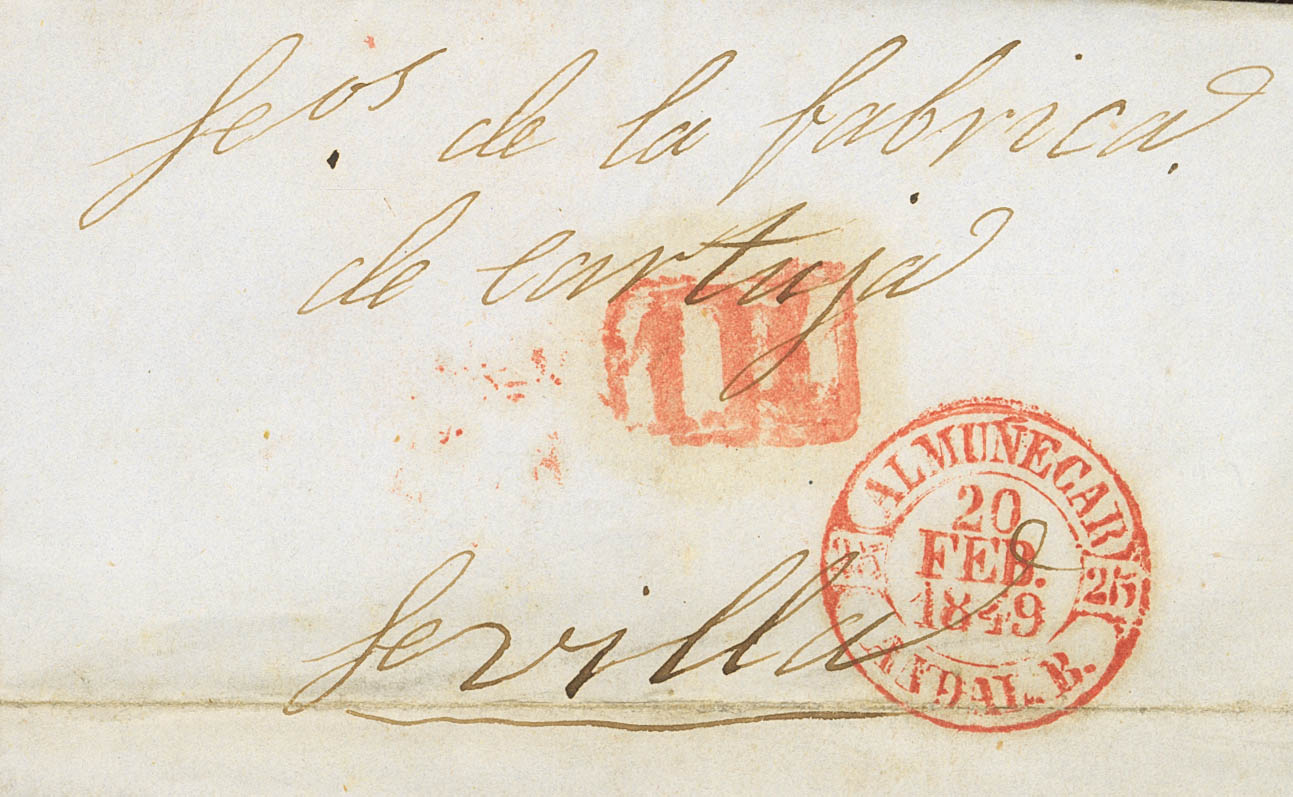 Seos. de la fabrica.
de cartuja
Sevilla
ALMUÑECAR
20
FEB.
1849
25 25
ANDAL. B.